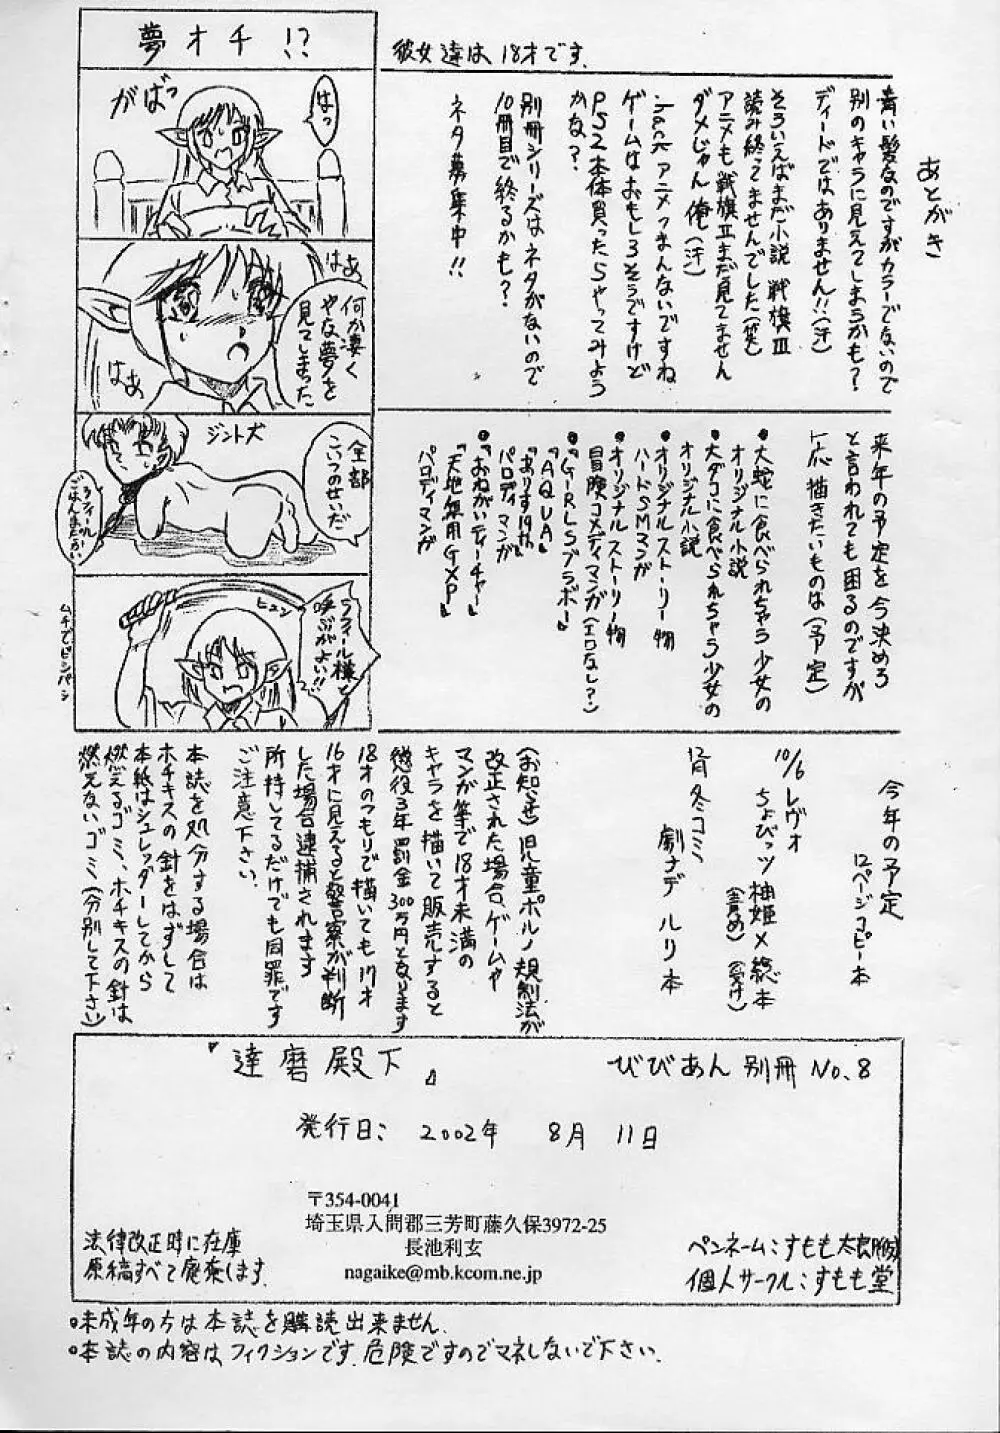 夢オチ!?
はっ
がばっ
はぁ
何か凄く
やな夢を
見てしまった
はぁ
ジント犬
全部
こいつのせいだ
ラフィール
ごはんまだかい
ヒュン
ラフィール様と
呼ぶがよい!!
ムチでビシバシ
彼女達は、18才です。
あとがき
青い髪なのですがカラーでないので
別のキャラに見えてしまうかも?
ディードではありません!!(汗)
そういえばまだ小説 戦旗III
読み終ってませんでした(笑)
アニメも戦旗IIまだ見てません
ダメじゃん俺(汗)
.hack アニメつまんないですね
ゲームはおもしろそうですけど
PS2本体買ったらやってみよう
かな?
別冊シリーズはネタがないので
10冊目で終るかも?
ネタ募集中!!
来年の予定を今決めろ
と言われても困るのですが
一応描きたいものは(予定)
•大蛇に食べられちゃう少女の
オリジナル小説
•大ダコに食べられちゃう少女の
オリジナル小説
•オリジナルストーリー物
ハードSMマンガ
•オリジナルストーリー物
冒険コメディマンガ(エロなし?)
•『GIRLSブラボー』
『AQUA』
『ありす19th』
パロディマンガ
•『おねがいティーチャー』
『天地無用GXP』
パロディマンガ
今年の予定
12ページコピー本
10/6 レヴォ
ちょびっツ 柚姫×総本
(責め) (受け)
12月 冬コミ
劇ナデ ルリ本
(お知らせ)児童ポルノ規制法が
改正された場合、ゲームや
マンガ等で18才未満の
キャラを描いて販売すると
懲役3年罰金300万円となります
18才のつもりで描いても17才
16才に見えると警察が判断
した場合逮捕されます
所持してるだけでも同罪です
ご注意下さい。
本誌を処分する場合は
ホチキスの針をはずして
本紙はシュレッダーしてから
燃えるゴミ、ホチキスの針は
燃えないゴミ(分別して下さい)
『達磨殿下』
びびあん 別冊 No.8
発行日: 2002年 8月 11日
〒354-0041
埼玉県入間郡三芳町藤久保3972-25
長池利玄
nagaike@mb.kcom.ne.jp
法律改正時に在庫
原稿すべて廃棄します。
ペンネーム:すもも太郎(仮)
個人サークル:すもも堂
•未成年の方は本誌を購読出来ません。
•本誌の内容は、フィクションです。危険ですのでマネしないで下さい。